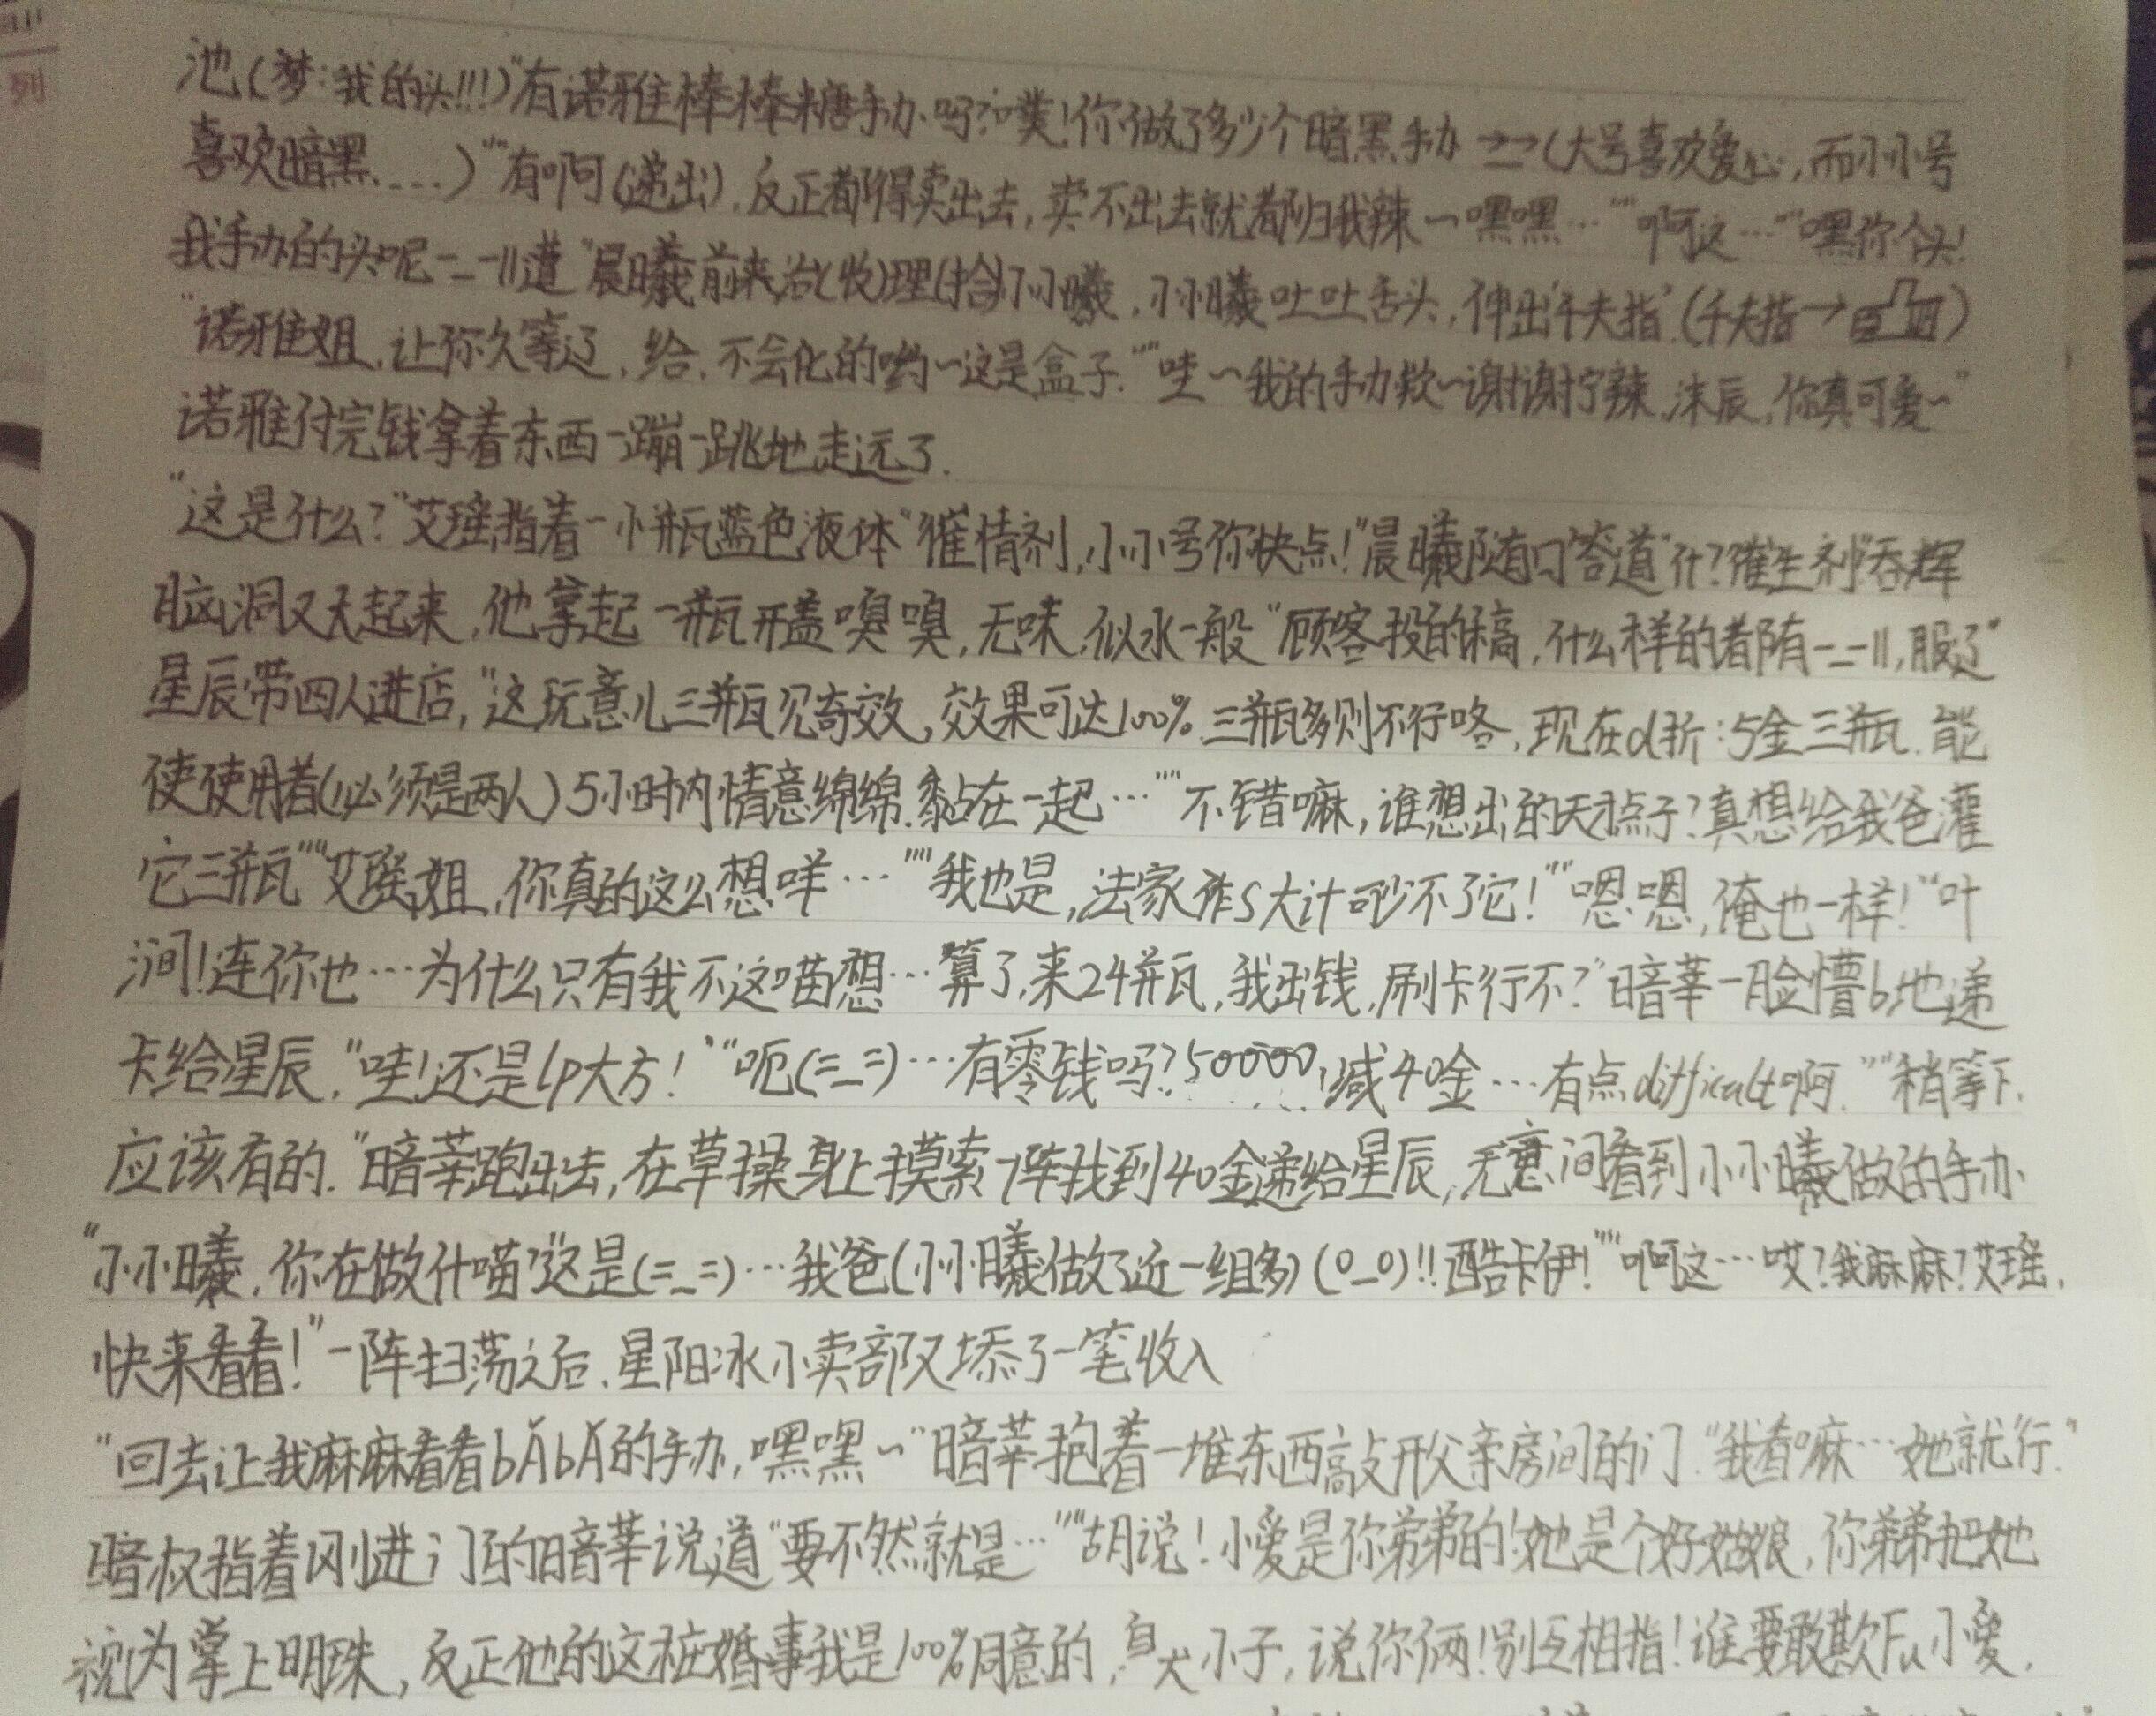 池(梦:我的头!!!)"有诺雅棒棒糖手办吗?""噗!你做了多少个暗黑手办 →→(大号喜欢爱心,而小小号
喜欢暗黑....)""有啊(递出).反正都得卖出去,卖不出去就都归我辣~嘿嘿…""啊这…""嘿你个头!
我手办的头呢-_-||道"晨曦前来治(收)理(拾)小小曦,小小曦吐吐舌头,伸出'千夫指'.(千夫指→)
"诺雅姐,让你久等辽,给,不会化的哟~这是盒子.""哇~我的手办欸~谢谢宁辣,沫辰,你真可爱~"
诺雅付完钱拿着东西一蹦一跳地走远了.
"这是什么?"艾瑶指着一小瓶蓝色液体"催情剂,小小号你快点!"晨曦随口答道"什?催生剂"吞辉
脑洞又大起来,他拿起一瓶开盖嗅嗅,无味,似水一般"顾客投的稿,什么样的都有-_-||,服辽"
星辰带四人进店,"这玩意儿三瓶见奇效,效果可达100%.三瓶多则不行咯,现在d折:5金三瓶.能
使使用者(必须是两人)5小时内情意绵绵.黏在一起…""不错嘛,谁想出的天才点子?真想给我爸灌
它三瓶""艾瑶姐,你真的这么想咩…""我也是,法家祚S大计可少不了它!""嗯嗯,俺也一样!""叶
涧!连你也…为什么只有我不这喵想…算了,来24瓶,我出钱,刷卡行不?"暗莘一脸懵b地递
卡给星辰."哇!还是lp大方!""呃(=_=)…有零钱吗?50000,减40金…有点difficult啊.""稍等下,
应该有的."暗莘跑出去,在草操身上摸索一阵找到40金递给星辰,无意间看到小小曦做的手办
"小小曦,你在做什喵?""这是(=_=)…我爸(小小曦做了近一组多)(0_0)!!酷卡伊!""啊这…哎?我麻麻?艾瑶,
快来看看!"一阵扫荡之后.星阳冰小卖部又添了一笔收入
"回去让我麻麻看看bÀbÀ的手办,嘿嘿~"暗莘抱着一堆东西敲开父亲房间的门."我看嘛…她就行."
暗权指着刚进门的暗莘说道"要不然就是…""胡说!小爱是你弟弟的!她是个好姑娘,你弟弟把她
视为掌上明珠,反正他的这桩婚事我是100%同意的,臭小子,说你俩!别互相指!谁要敢欺负小爱,